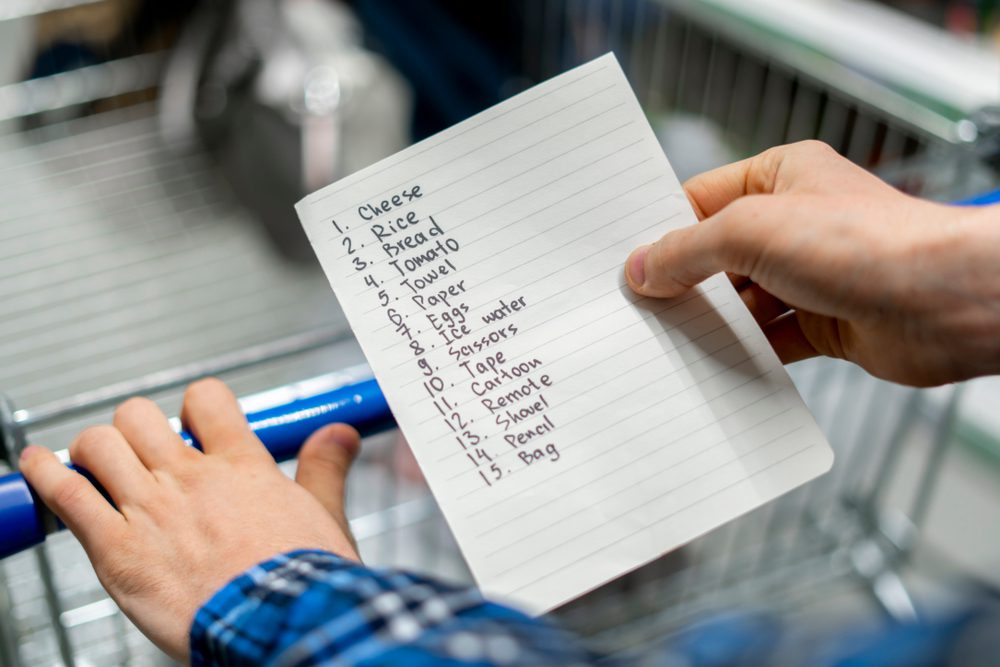 1. Cheese
2. Rice
3. Bread
4. Tomato
5. Towel
6. Paper
7. Eggs
8. Ice water
9. Scissors
10. Tape
11. Cartoon
12. Remote
13. Shavel
14. Pencil
15. Bag